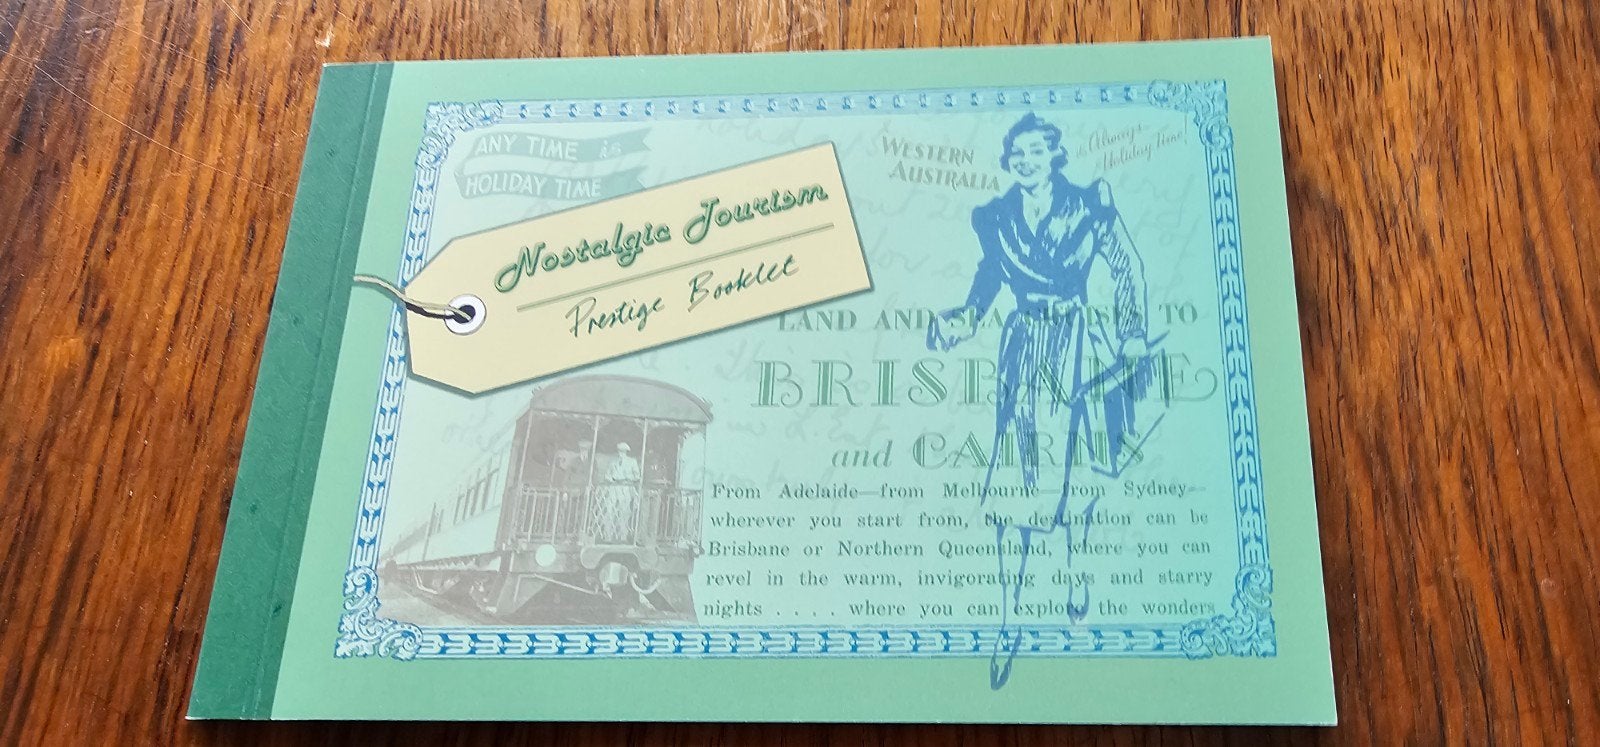 ANY TIME is
HOLIDAY TIME
Nostalgic Tourism
Prestige Booklet
WESTERN
AUSTRALIA
is Always
Holiday Time!
LAND AND SEA CRUISES TO
BRISBANE
and CAIRNS
From Adelaide—from Melbourne—from Sydney—
wherever you start from, the destination can be
Brisbane or Northern Queensland, where you can
revel in the warm, invigorating days and starry
nights . . . . where you can explore the wonders